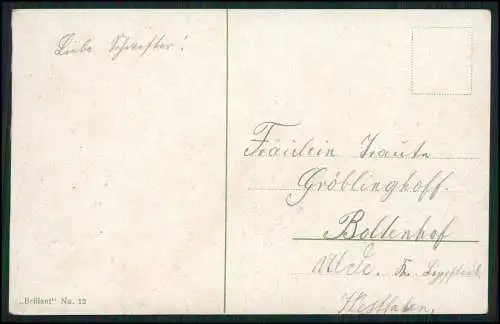 Liebe Schwester!
Fräulein Traute
Gröblinghoff.
Bollenhof
Uelde. Kr. Lippstadt.
Westfalen.
„Brillant" No. 12